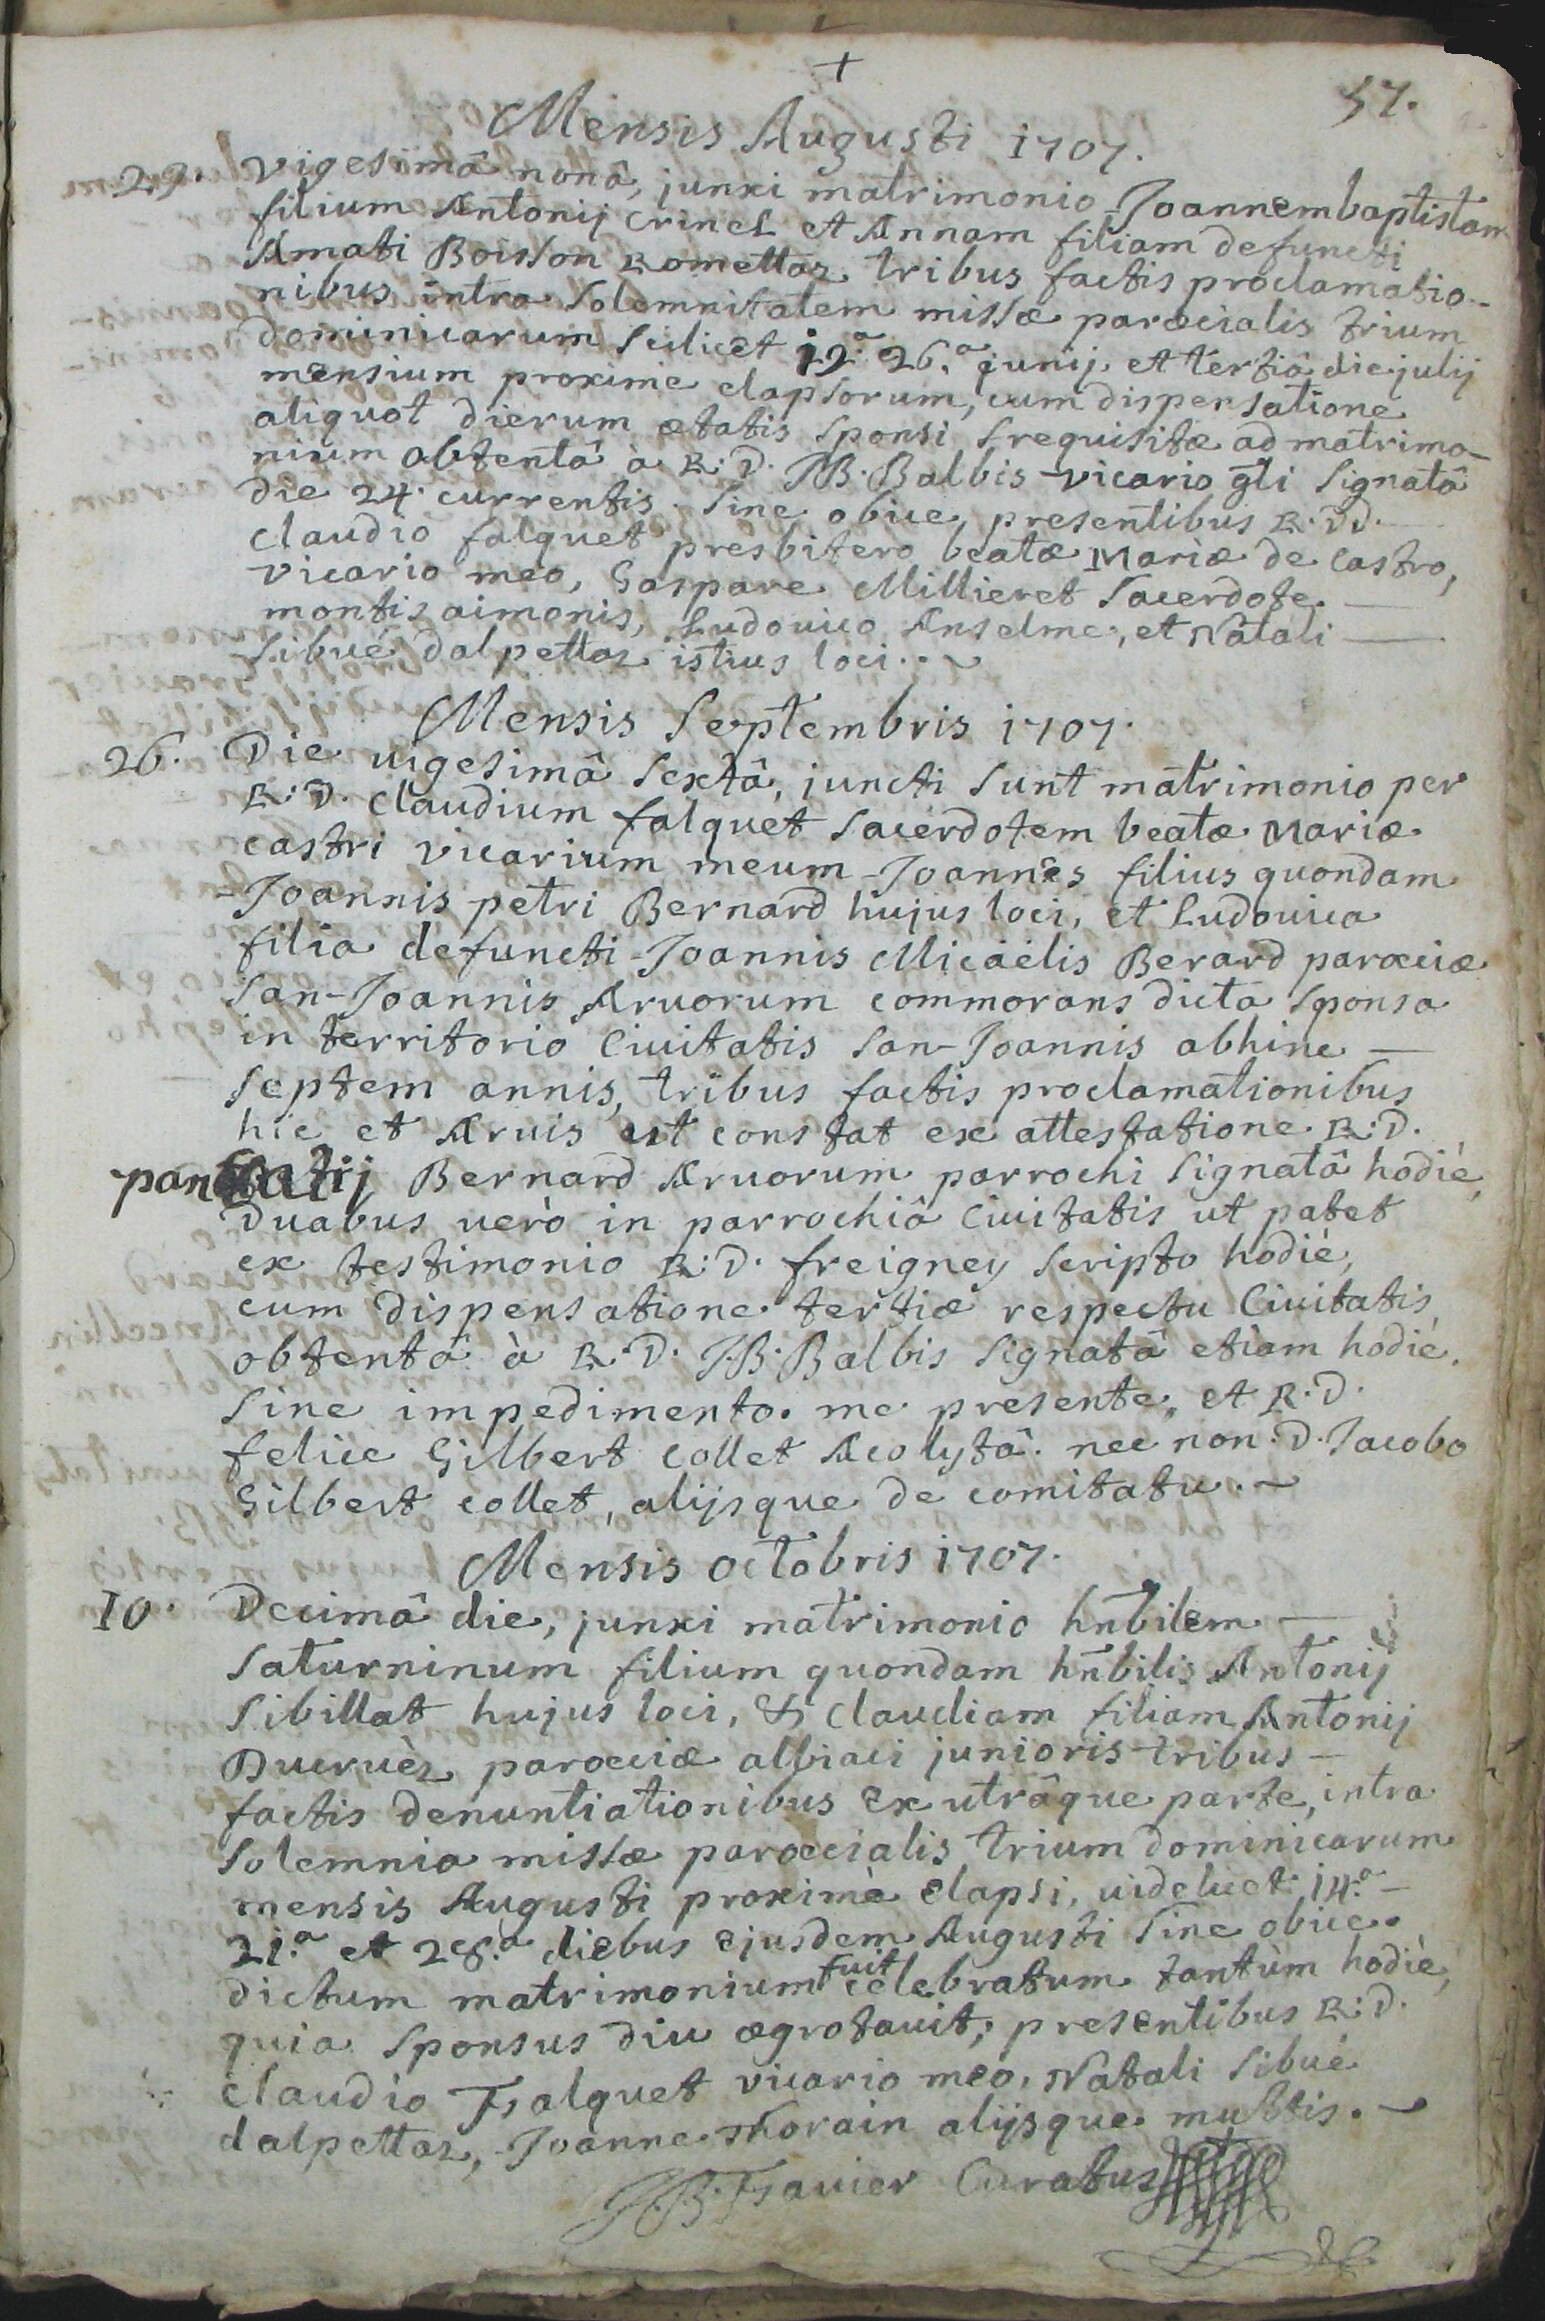 +
57.
Mensis Augusti 1707.
29. Vigesimâ nonâ, junxi matrimonio Joannembaptistam
filium Antonij Crinel et Annam filiam defuncti
Amati Boisson Romettaz tribus factis proclamatio-
nibus intra Solemnitatem missæ paræcialis trium
dominicarum scilicet 19.a 26.a junij et tertiâ die julij
mensium proxime elapsorum, cum dispensatione
aliquot dierum ætatis sponsi requisitæ ad matrimo-
nium obtentâ à R: D. JB. Balbis vicario gli signatâ
die 24. currentis. Sine obice, presentibus R. DD.
Claudio falquet presbitero beatæ Mariæ de Castro,
vicario meo, Gaspare Millieret sacerdote
montis aimonis, Ludouico Anselme, et Natali
Sibué dalpettaz istius loci.
Mensis Septembris 1707.
26. Die uigesimâ sextâ, juncti sunt matrimonio per
R: D. Claudium falquet sacerdotem beatæ Mariæ
castri vicarium meum Joannes filius quondam
Joannis petri Bernard hujus loci, et Ludouica
filia defuncti Joannis Micäelis Berard paræciæ
San-Joannis Aruorum commorans dicta sponsa
in territorio Ciuitatis San-Joannis abhinc
septem annis, tribus factis proclamationibus
hic et Aruis ut constat ex attestatione R: D.
Bernard Aruorum parrochi signatâ hodiè,
Duabus uerò in parrochiâ Ciuitatis ut patet
ex testimonio R: D. freigney scripto hodiè,
cum dispensatione tertiæ respectu Ciuitatis
obtentâ à R. D. J.B. Balbis signatâ etiam hodiè.
Sine impedimento. me presente, et R. D.
felice Gilbert Collet Acolytâ. nec non D. Jacobo
Gilbert collet, alijsque de comitatu.
Mensis octobris 1707.
10. Decimâ die, junxi matrimonio hñbilem
Saturninum filium quondam hñbilis Antonij
Sibillat hujus loci, & Claudiam filiam Antonij
Ducruèz paroeciæ albiaci junioris tribus
factis denuntiationibus Ex utrâque parte, intra
Solemnia missæ paroecialis trium dominicarum
mensis Augusti proximè elapsi, uidelicet 14.a
21.a et 28.a diebus ejusdem Augusti sine obice.
dictum matrimonium fuit celebratum tantùm hodiè,
quia sponsus diu ægrotauit; presentibus R: D.
Claudio Falquet vicario meo, Natali Sibué
dalpettaz, Joanne Thorain alijsque multis.
J.B. Fauier Curatus